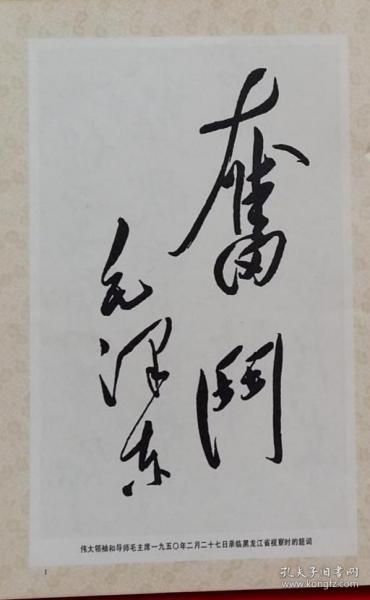 奮鬥
毛泽东
伟大领袖和导师毛主席一九五〇年二月二十七日亲临黑龙江省视察时的题词
1
孔夫子旧书网
kongfz.com